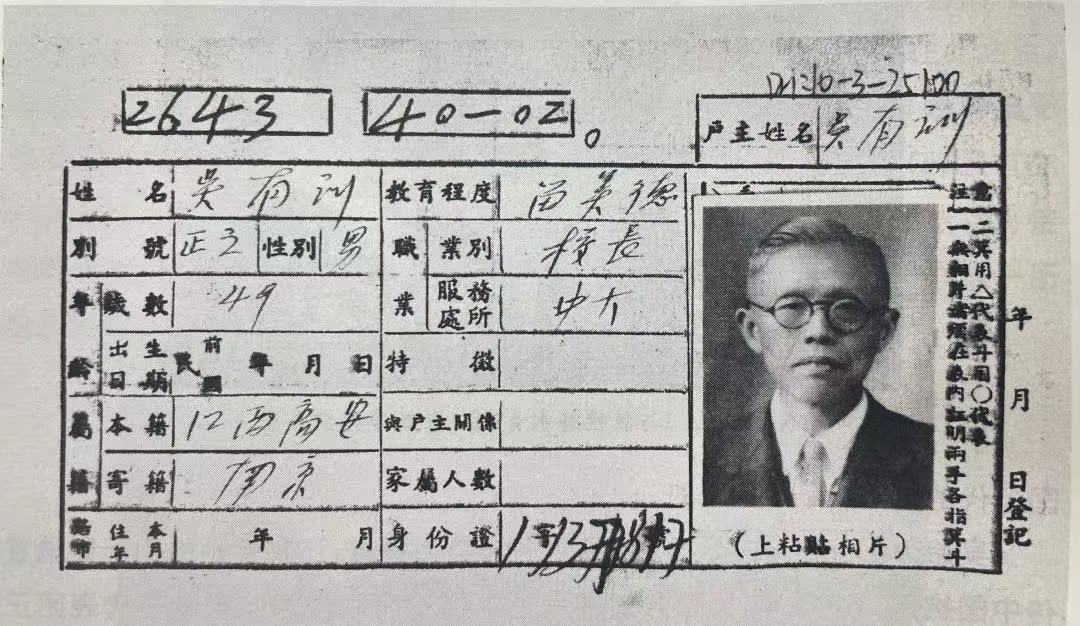 2643 40-02。
戶主姓名 吳有訓
姓名 吳有訓 教育程度 留美德
別號 正之 性別 男 職業別 校長
年齡 歲數 49 服務處所 中大
出生日期 民前國 年 月 日 特徵
屬籍 本籍 江西高安 與戶主關係
寄籍 南京 家屬人數
住本年月 年 月 身份證
注意
一無相片者須在表內証明兩手各指箕斗
二箕用△代表斗用○代表
(上粘點相片)
年 月 日登記